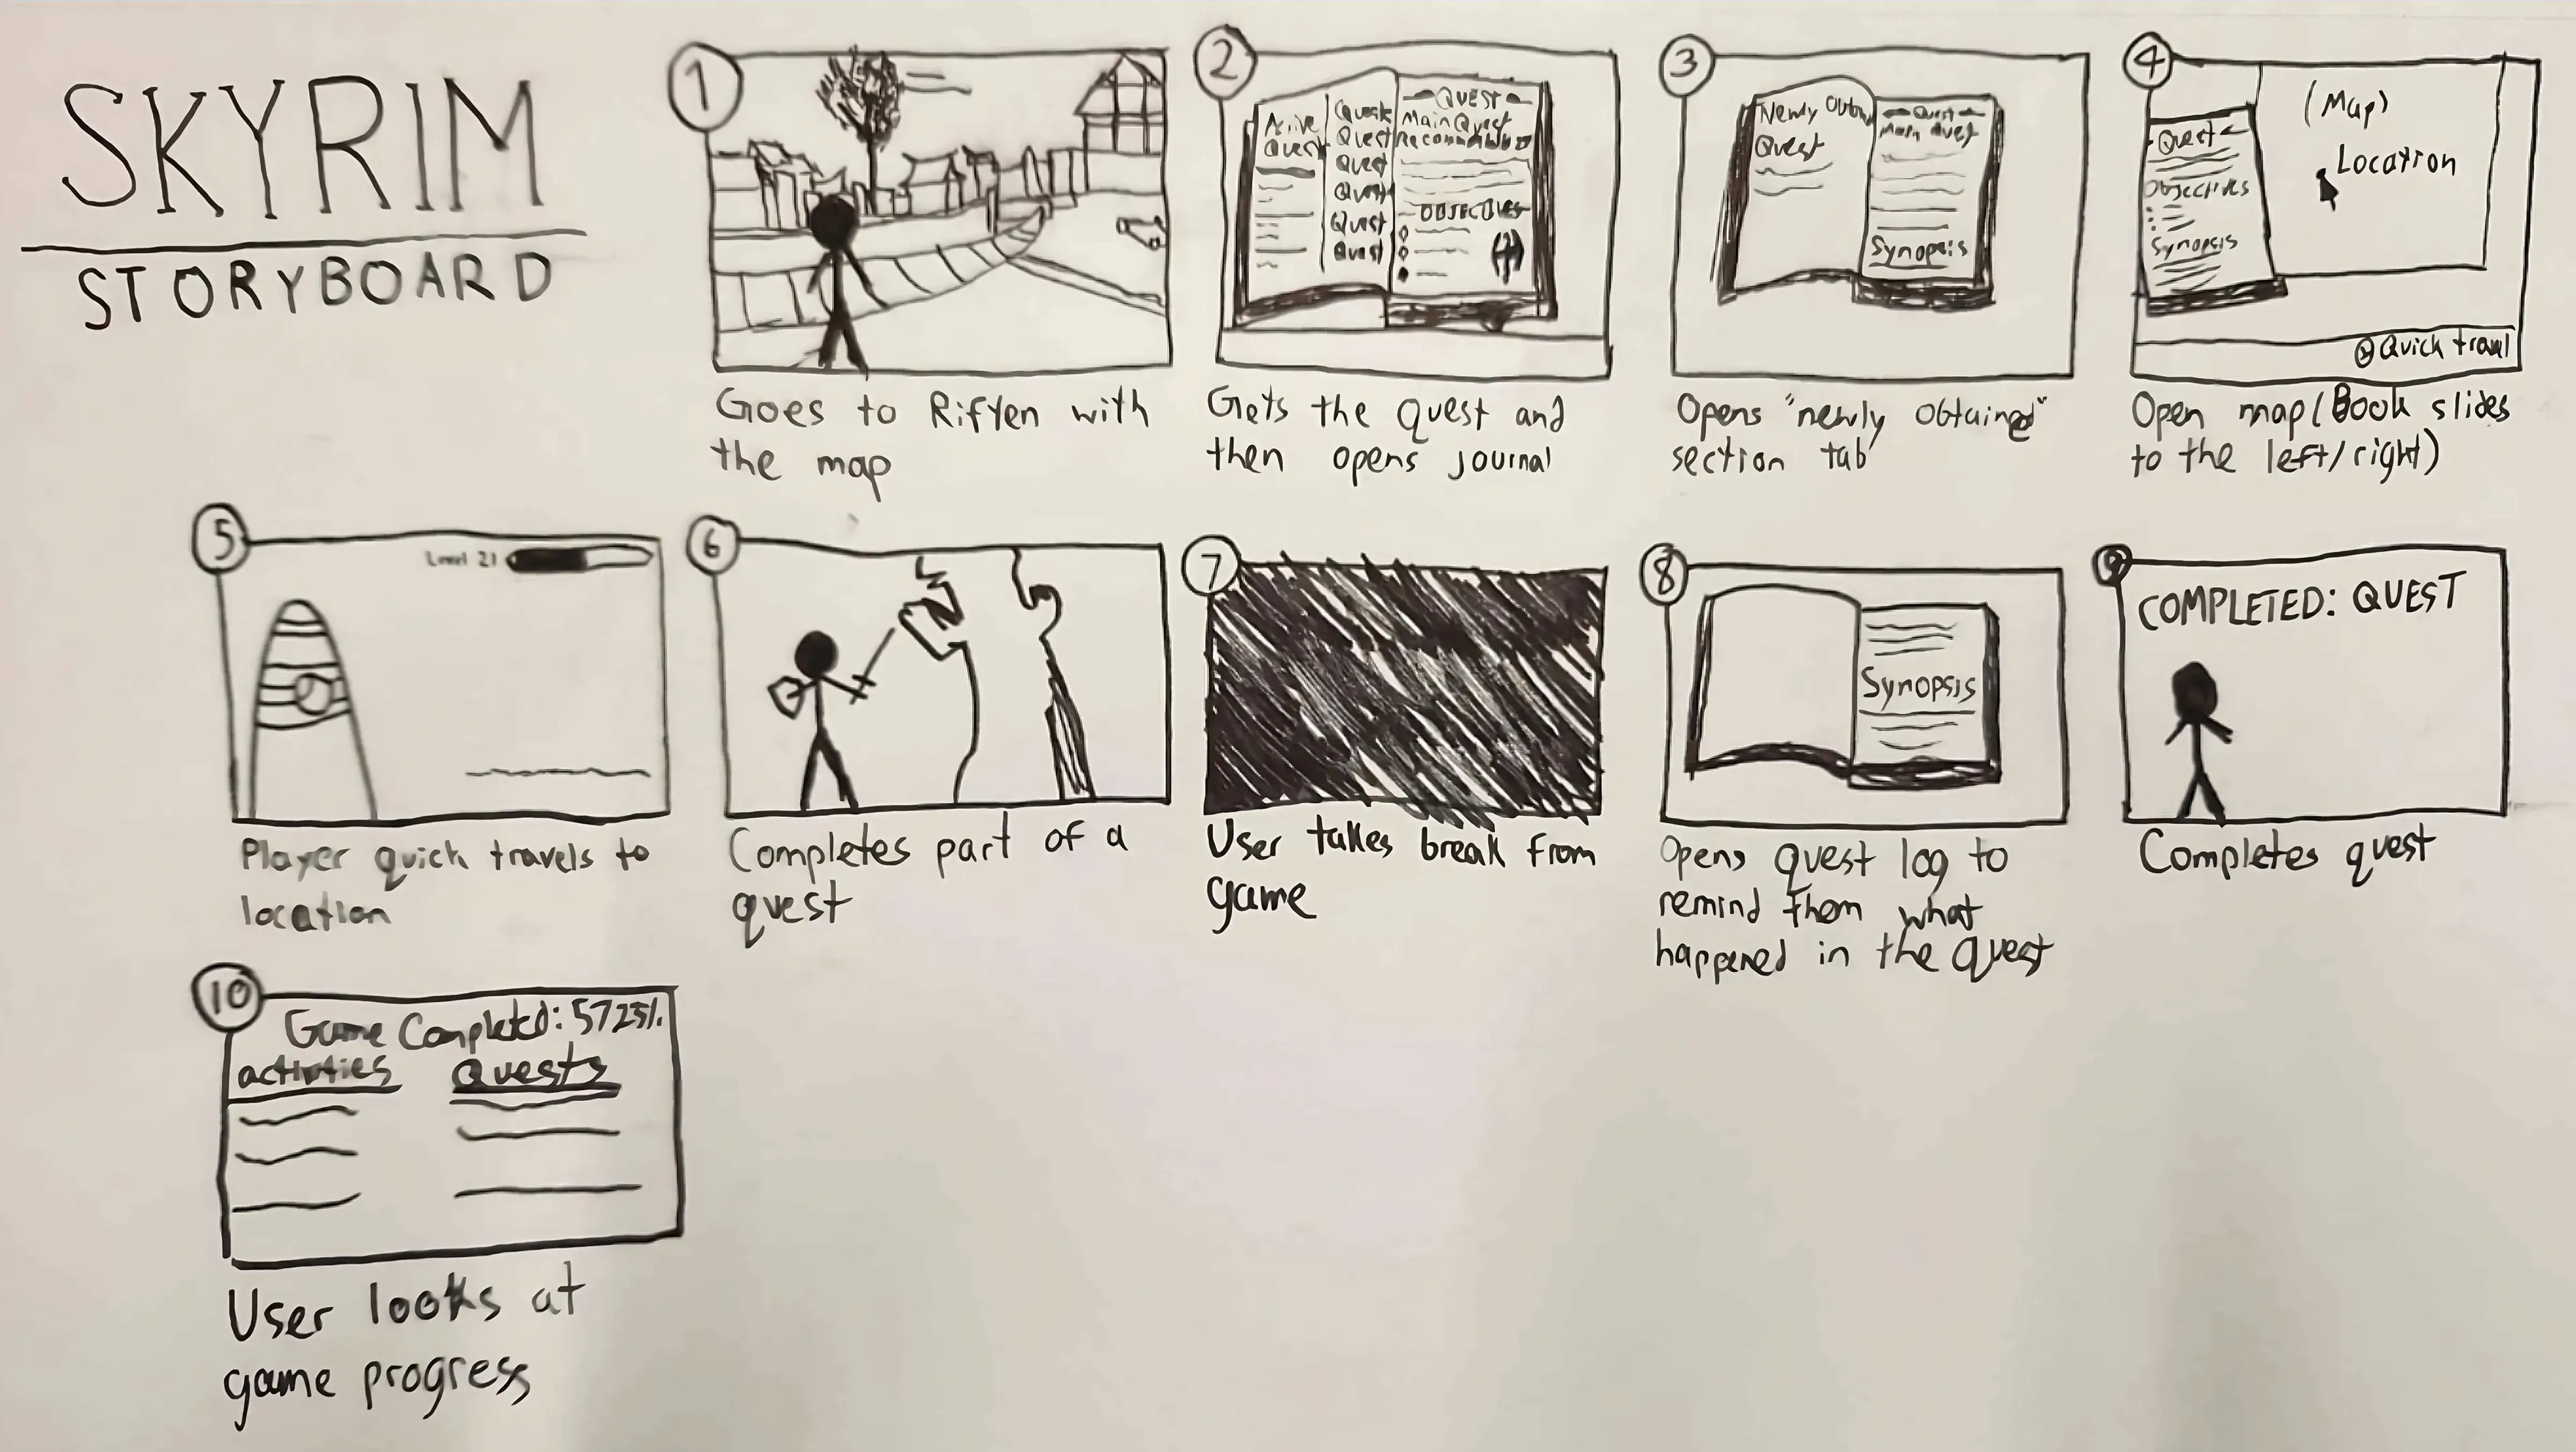 SKYRIM
STORYBOARD
1
Goes to Riften with
the map
2
Active
Quest
Quest
Quest
Quest
Quest
Quest
Quest
QUEST
Main Quest
OBJECTIVES
Gets the quest and
then opens journal
3
Newly
Quest
Quest
Main Quest
Synopsis
Opens "newly obtained"
section tab
4
Quest
Objectives
Synopsis
(Map)
Location
Quick travl
Open map (Book slides
to the left/right)
5
Level 21
Player quick travels to
location
6
Completes part of a
quest
7
User takes break from
game
8
Synopsis
Opens quest log to
remind them what
happened in the quest
9
COMPLETED: QUEST
Completes quest
10
Game Completed: 5725%
activities
Quests
User looks at
game progress